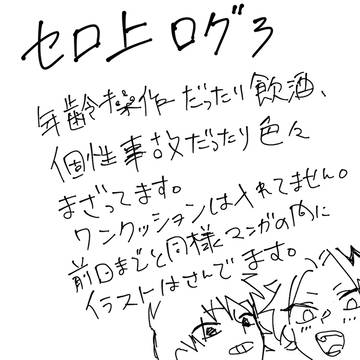 セロ上ログ3
年齢操作だったり飲酒、
個性事故だったり色々
まざってます。
ワンクッションは入れてません。
前回までと同様マンガの内に
イラストはさんでます。